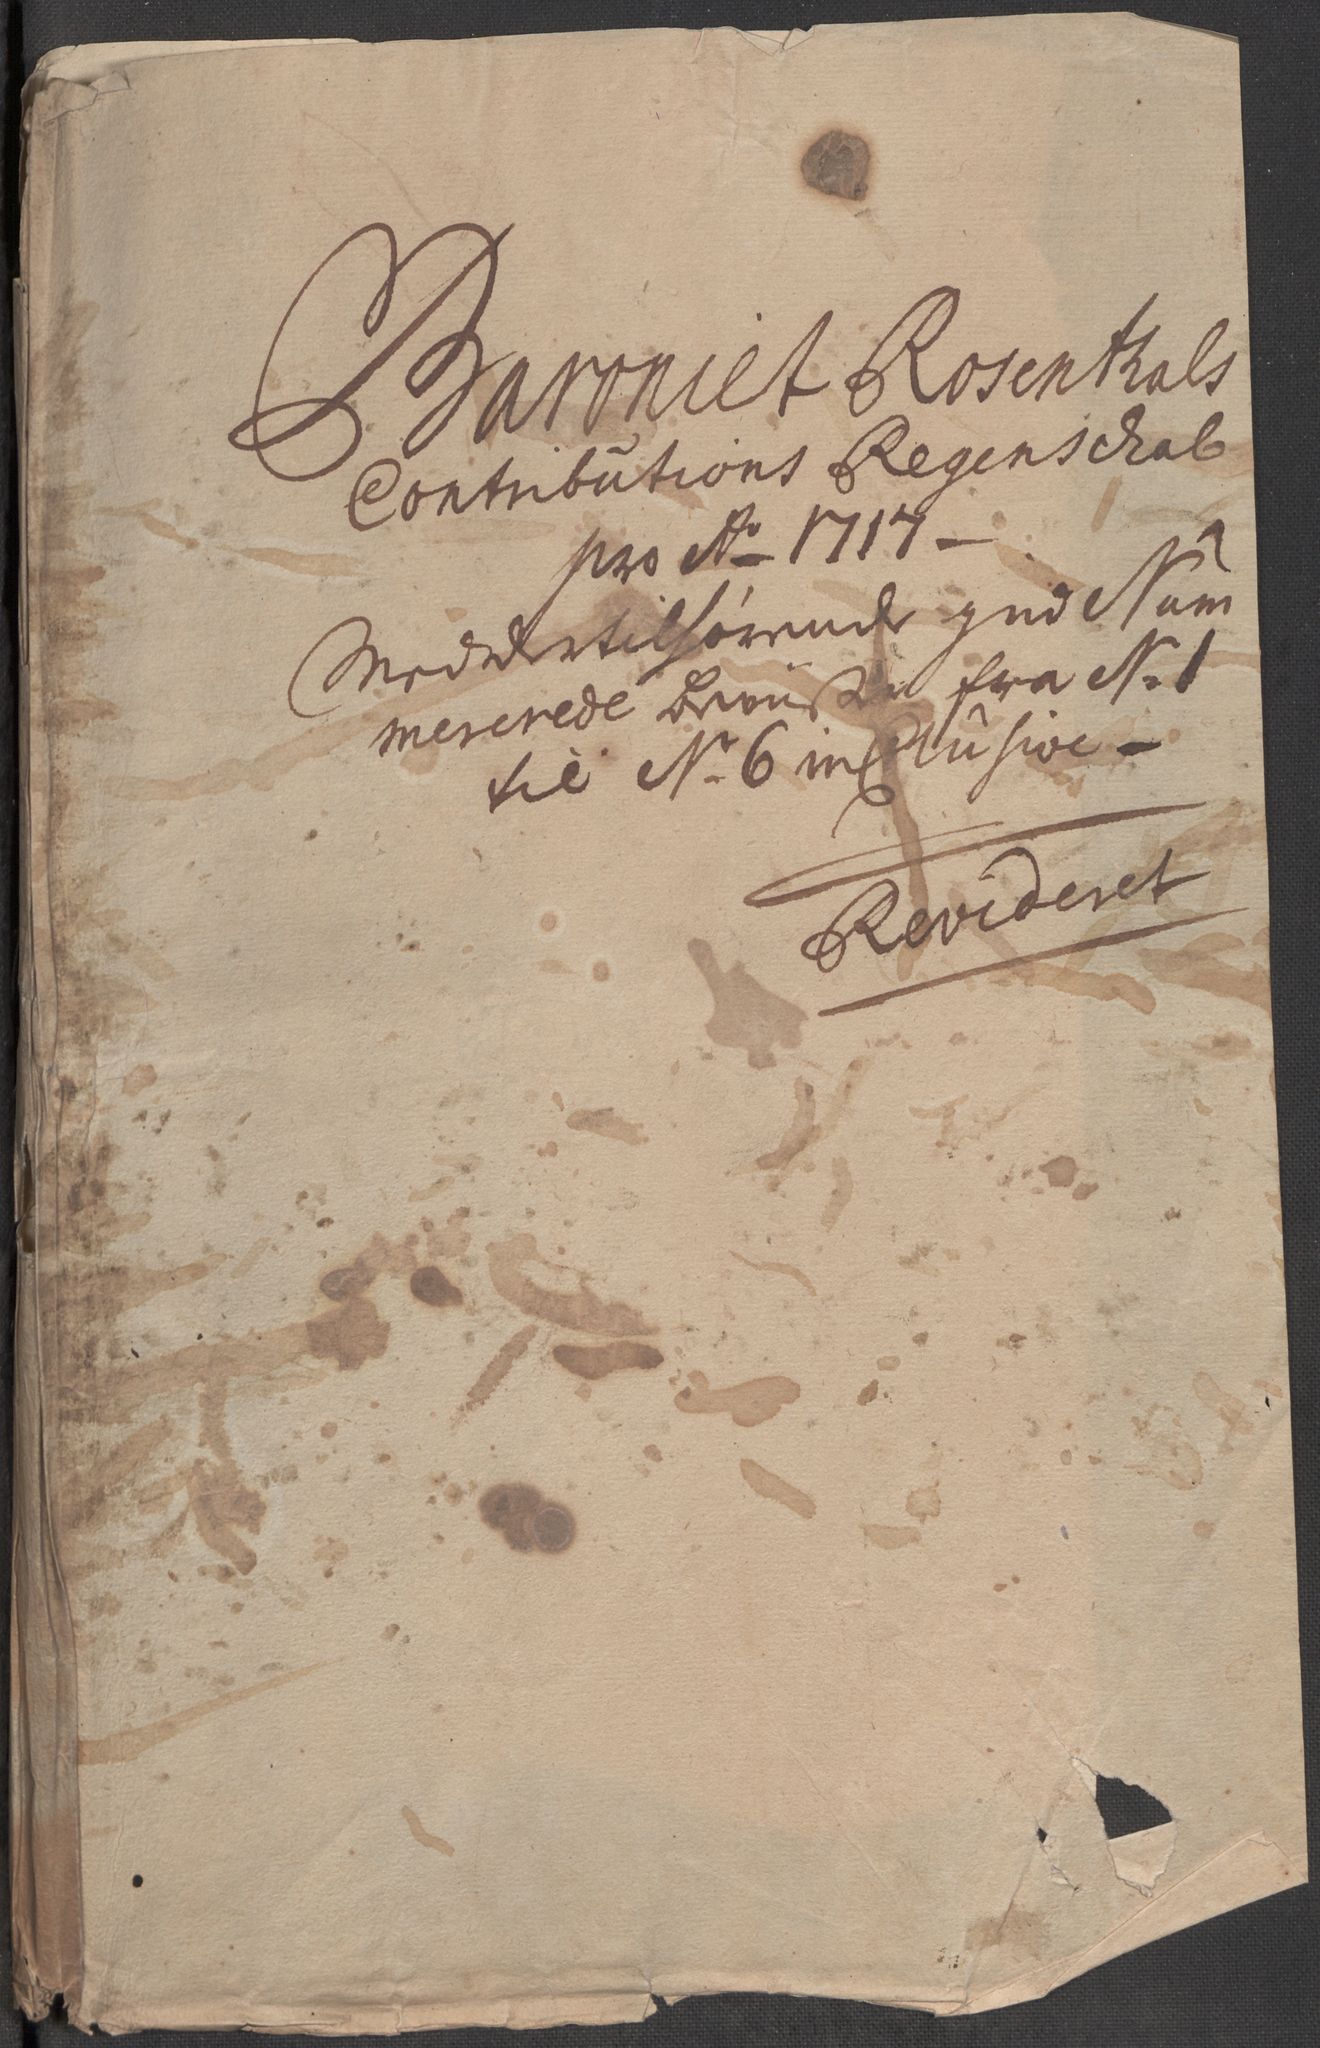 Baroniet Rosenthals
Contributions Regenschab
pro Ao 1717
Med dertilhørende Num
mererede beviiser fra No 1
til No 6 inclusive
Revideret